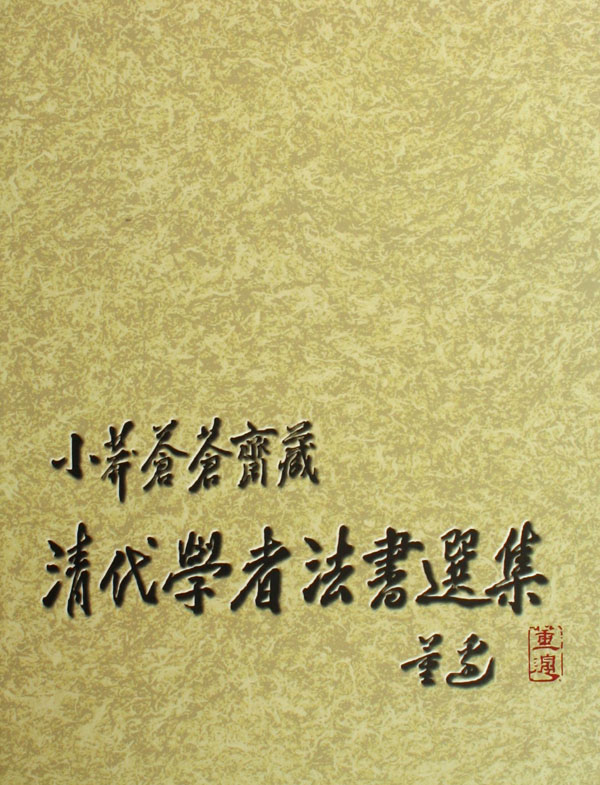 小莽蒼蒼齋藏
清代學者法書選集
董边